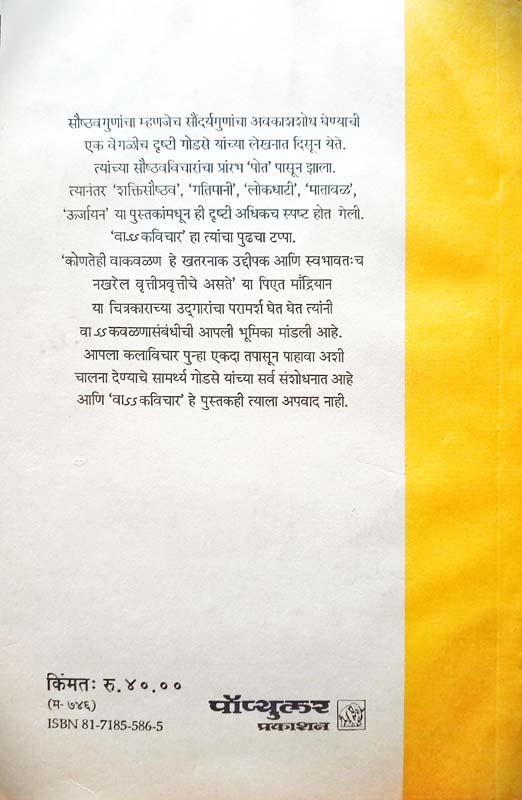 सौष्ठवगुणांचा म्हणजेच सौंदर्यगुणांचा अवकाशशोध घेण्याची
एक वेगळीच दृष्टी गोडसे यांच्या लेखनात दिसून येते.
त्यांच्या सौष्ठवविचारांचा प्रारंभ ‘पोत’ पासून झाला.
त्यानंतर ‘शक्तिसौष्ठव’, ‘गतिपानी’, ‘लोकधाटी’, ‘मातावळ’,
‘ऊर्जायन’ या पुस्तकांमधून ही दृष्टी अधिकच स्पष्ट होत गेली.
‘वाऽऽकविचार’ हा त्यांचा पुढचा टप्पा.
‘कोणतेही वाकवळण हे खतरनाक उद्दीपक आणि स्वभावतःच
नखरेल वृत्तीप्रवृत्तीचे असते’ या पिएत माँद्रियान
या चित्रकाराच्या उद्‌गारांचा परामर्श घेत घेत त्यांनी
वाऽऽकवळणासंबंधीची आपली भूमिका मांडली आहे.
आपला कलाविचार पुन्हा एकदा तपासून पाहावा अशी
चालना देण्याचे सामर्थ्य गोडसे यांच्या सर्व संशोधनात आहे
आणि ‘वाऽऽकविचार’ हे पुस्तकही त्याला अपवाद नाही.
किंमतः रु.४०.००
(म-७४६)
ISBN 81-7185-586-5
पॉप्युलर
प्रकाशन